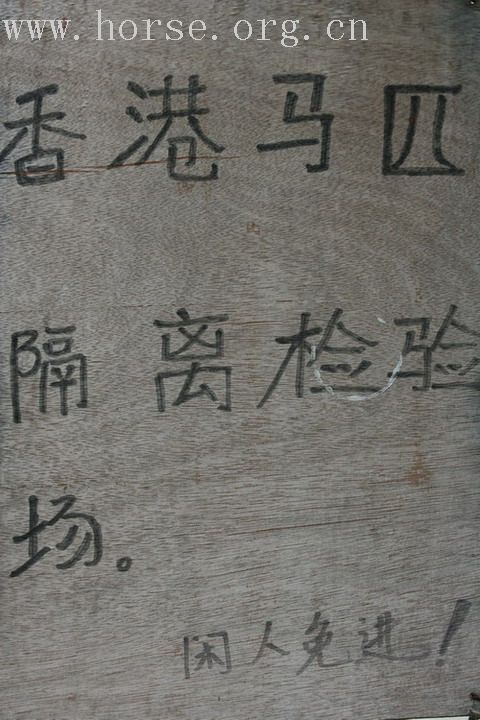 www.horse.org.cn
香港马匹
隔离检验
场。
闲人免进！